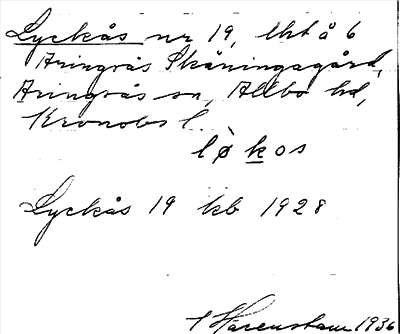 Lyckås nr 19, lht å 6
Aringsås Skåningsgård,
Aringsås sn, Allbo hd,
Kronobs l.
lø̀kos
Lyckås 19 kb 1928
Harenstam 1936